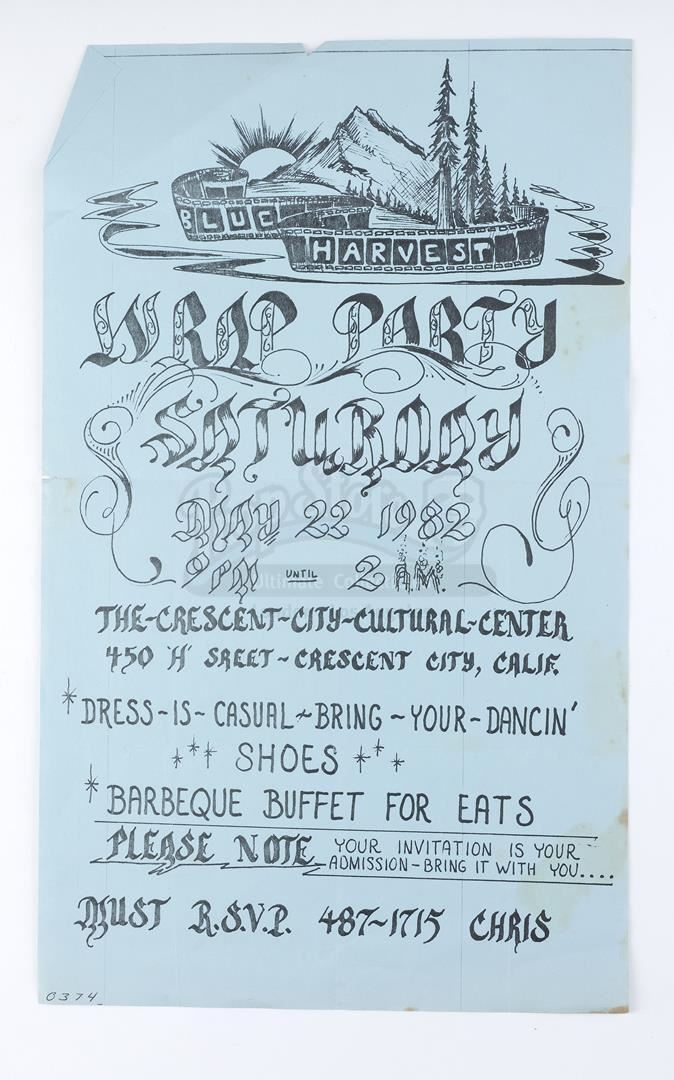 BLUE
HARVEST
WRAP PARTY
SATURDAY
MAY 22 1982
9 PM UNTIL 2 A.M.
THE-CRESCENT-CITY-CULTURAL-CENTER
450 'H' SREET~CRESCENT CITY, CALIF.
*DRESS-IS-CASUAL~BRING~YOUR-DANCIN'
*** SHOES ***
*BARBEQUE BUFFET FOR EATS
PLEASE NOTE YOUR INVITATION IS YOUR
ADMISSION-BRING IT WITH YOU....
MUST R.S.V.P. 487~1715 CHRIS
0374